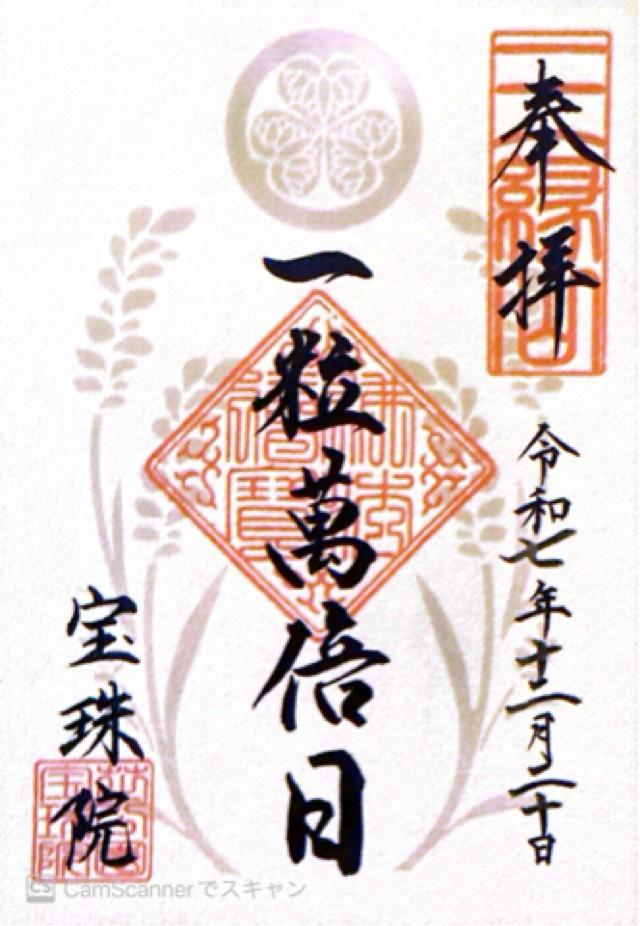 奉拝
令和七年十二月二十日
一粒萬倍日
宝珠院
佛法僧寳
CamScannerでスキャン